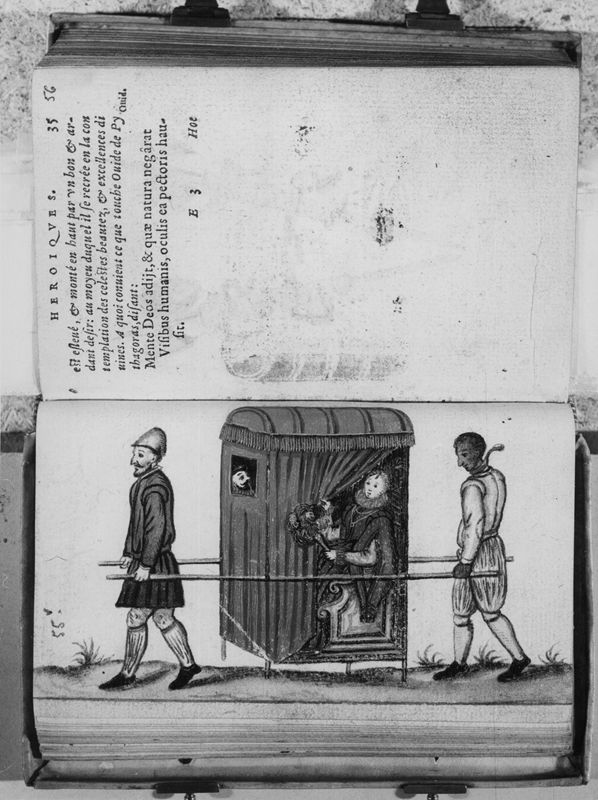 HEROIQVES. 35 56
est esleué, & monté en haut par vn bon & ar-
dant desir: au moyen duquel il se recrée en la con
templation des celestes beautez, & excellences di
uines. A quoi conuient ce que touche Ouide de Py
thagoras, disant: Ouid.
Mente Deos adijt, & quæ natura negârat
Visibus humanis, oculis ea pectoris hau-
sit.
E 3 Hoc
55v.